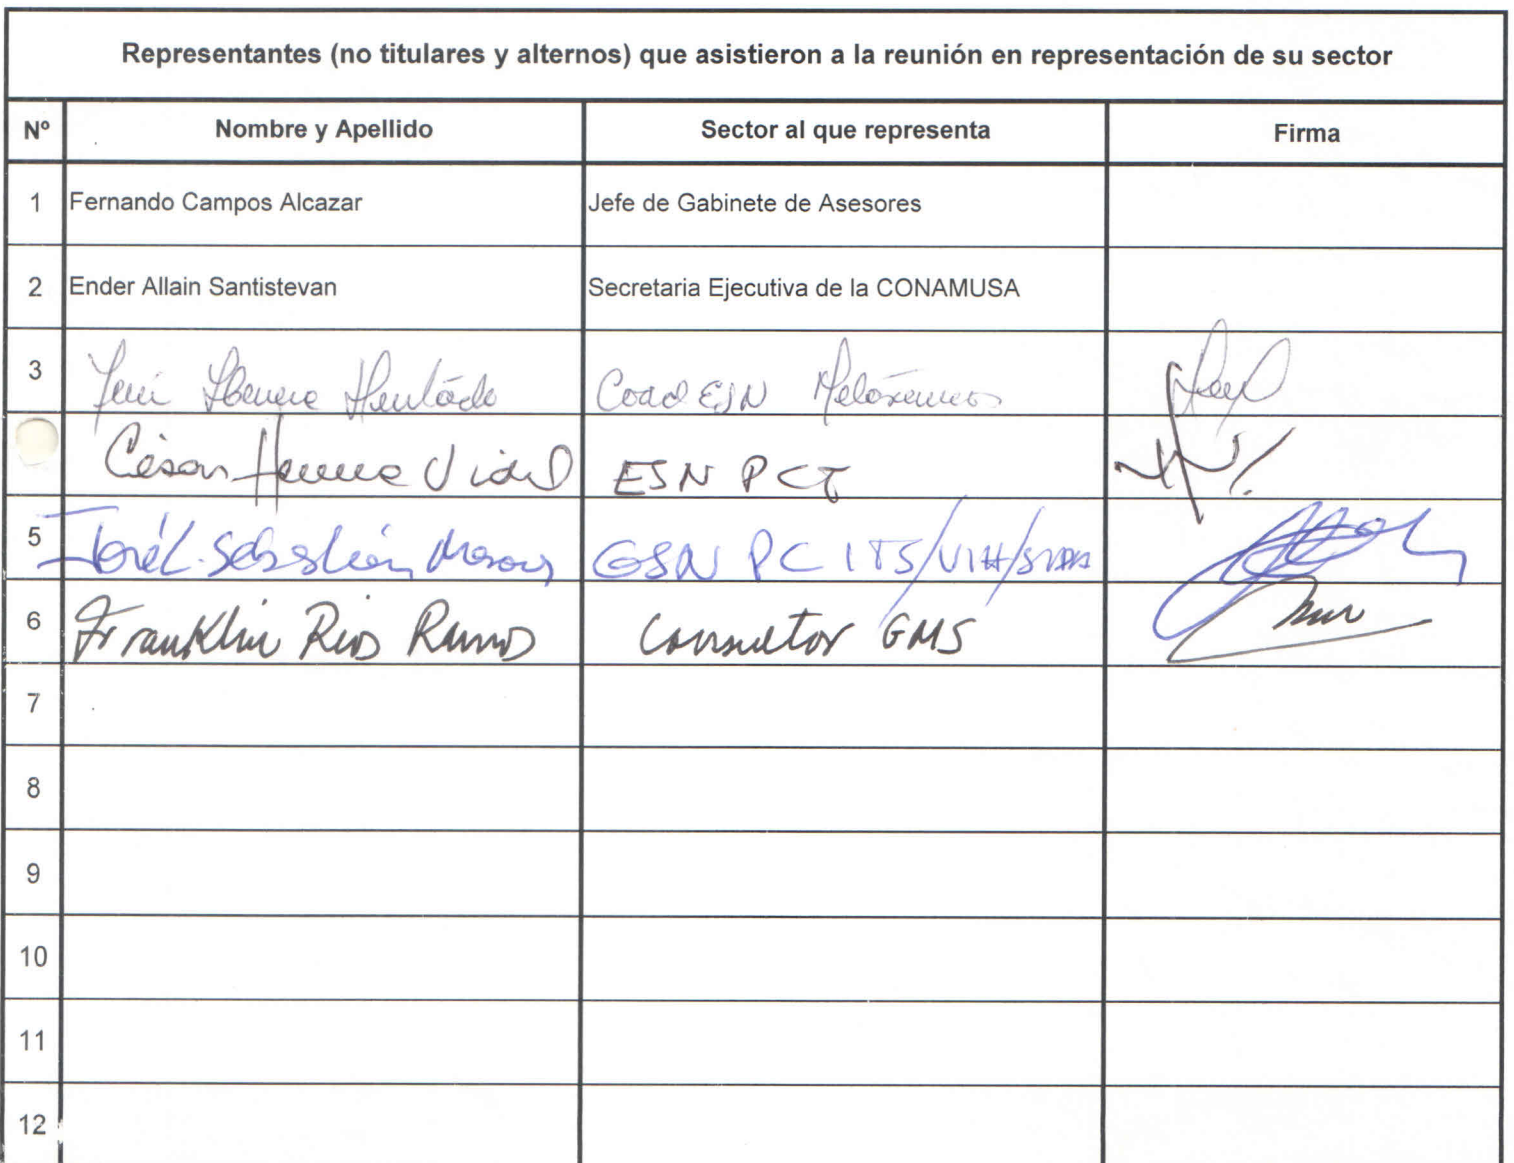 Representantes (no titulares y alternos) que asistieron a la reunión en representación de su sector
Nº Nombre y Apellido Sector al que representa Firma
1 Fernando Campos Alcazar Jefe de Gabinete de Asesores
2 Ender Allain Santistevan Secretaria Ejecutiva de la CONAMUSA
3 Hurtado ESN
César Vidal ESN PCT
5 José L. Sebastián PC ITS/VIH/SIDA
6 Franklin Rios Ramos Consultor GMS
7
8
9
10
11
12